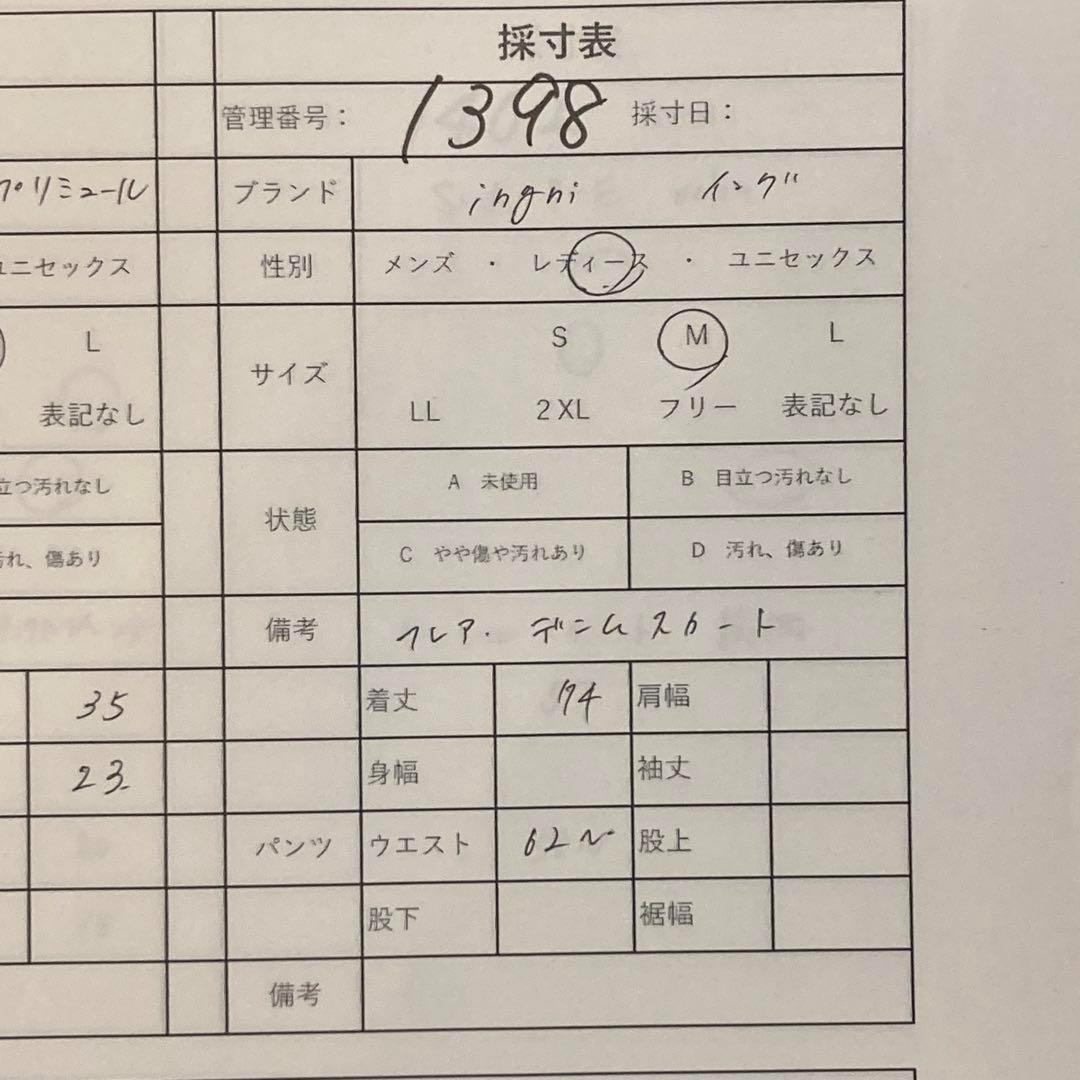 採寸表
管理番号： 1398 採寸日：
ブランド ingni イング
性別 メンズ ・ レディース ・ ユニセックス
サイズ S M L
LL 2XL フリー 表記なし
状態 A 未使用 B 目立つ汚れなし
C やや傷や汚れあり D 汚れ、傷あり
備考 フレア・デニムスカート
着丈 74 肩幅
身幅 袖丈
パンツ ウエスト 62〜 股上
股下 裾幅
備考
プリミュール
ユニセックス
L
表記なし
立つ汚れなし
汚れ、傷あり
35
23